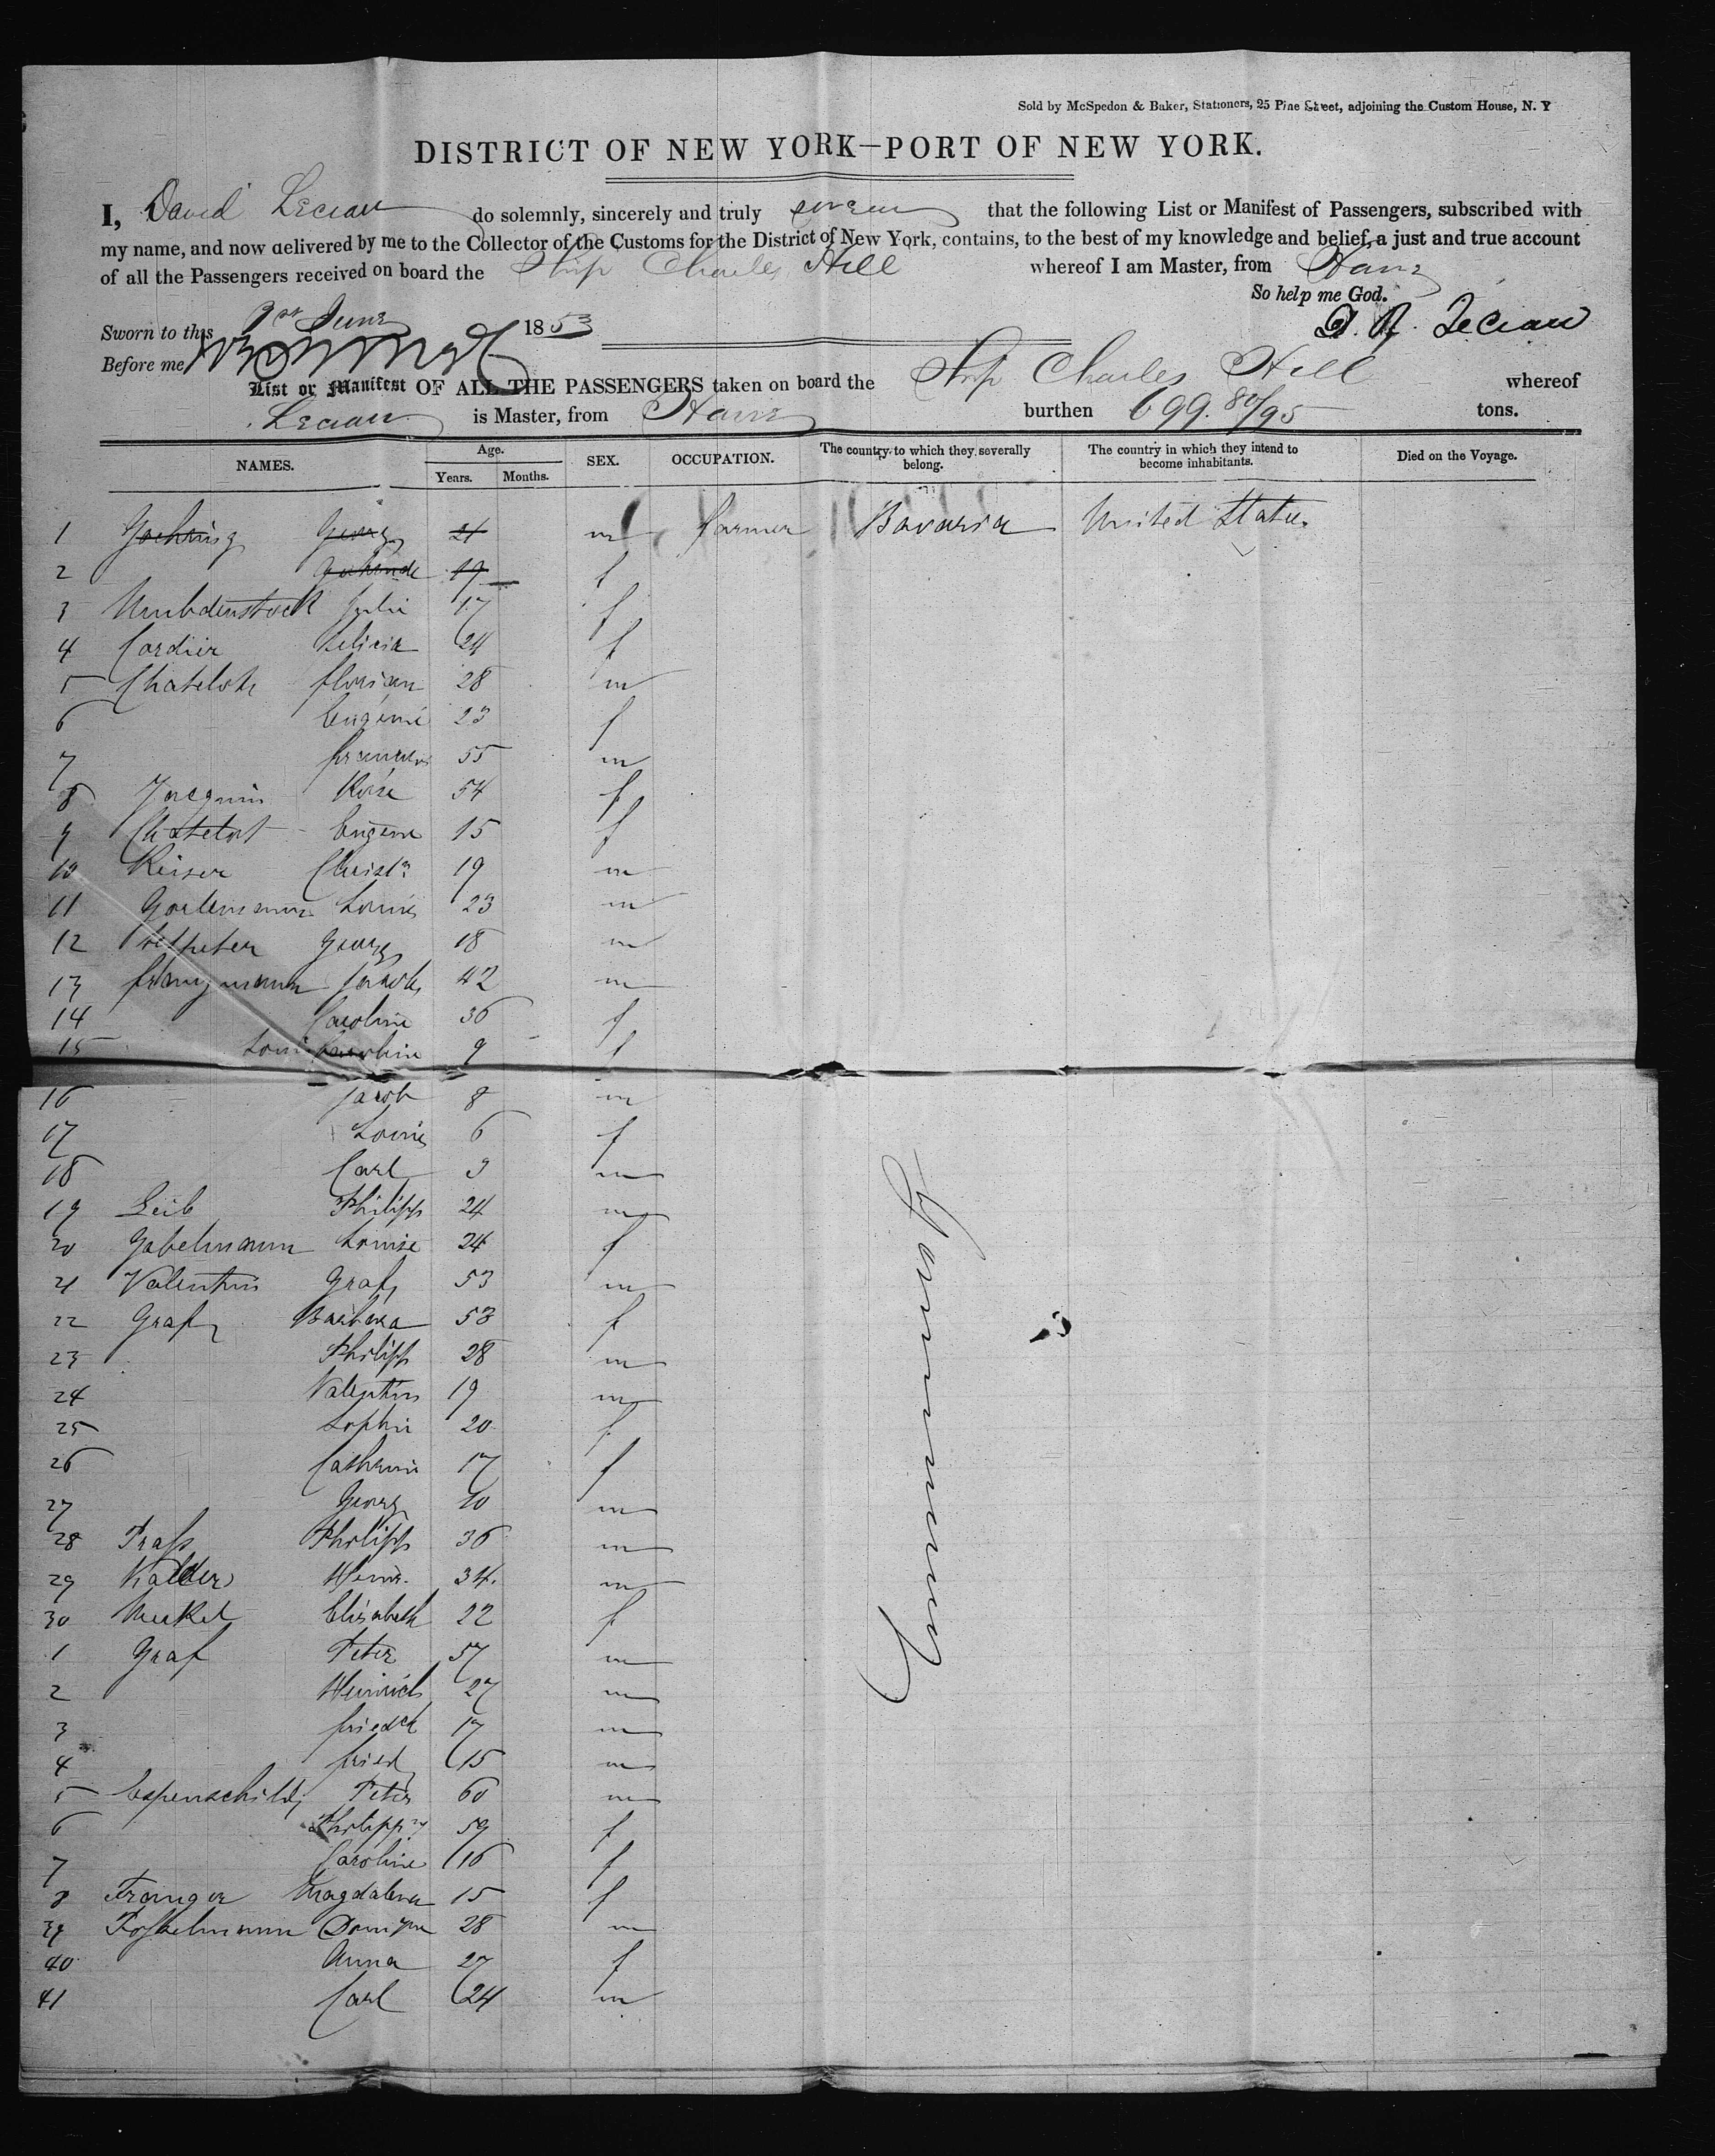 Sold by McSpedon & Baker, Stationers, 25 Pine Street, adjoining the Custom House, N. Y
DISTRICT OF NEW YORK—PORT OF NEW YORK.
I, David Lecraw do solemnly, sincerely and truly swear that the following List or Manifest of Passengers, subscribed with
my name, and now delivered by me to the Collector of the Customs for the District of New York, contains, to the best of my knowledge and belief, a just and true account
of all the Passengers received on board the Ship Charles Hill whereof I am Master, from Havre
So help me God.
Sworn to this June 1853
Before me
List or Manifest OF ALL THE PASSENGERS taken on board the Ship Charles Hill whereof
Lecraw is Master, from Havre burthen 699. 80/95 tons.
NAMES. Age. Years. Months. SEX. OCCUPATION. The country to which they severally belong. The country in which they intend to become inhabitants. Died on the Voyage.
1 Goehring Georg 21 m farmer Bavaria United States
2 19 f
3 Umbdenstock Julie 17 f
4 Cordier Felicia 24 f
5 Chatelot florian 28 m
6 Eugenie 23 f
7 francois 55 m
8 Jacquin Rose 54 f
9 Chatelot Eugene 15 f
10 Keiser Christn 19 m
11 Louis 23 m
12 Georg 18 m
13 Jacob 42 m
14 Caroline 36 f
15 Louis Caroline 9 f
16 Jacob 8 m
17 Louis 6 f
18 Carl 3 m
19 Leib Philipp 24 m
20 Gabelmann Louise 24 f
21 Valentin Graf 53 m
22 Graf Barbera 53 f
23 Philipp 28 m
24 Valentin 19 m
25 Sophie 20 f
26 Cathrine 17 f
27 Georg 10 m
28 Trass Philipp 36 m
29 Henr. 34. m
30 Merkel Elisabeth 22 f
1 Graf Peter 57 m
2 Heinrich 27 m
3 friedch 17 m
4 fried 15 m
5 Espenschild Peter 60 m
6 Philippn 59 f
7 Caroline 16 f
8 Franger Magdalena 15 f
39 28 m
40 Anna 27 f
41 Carl 24 m
Germany